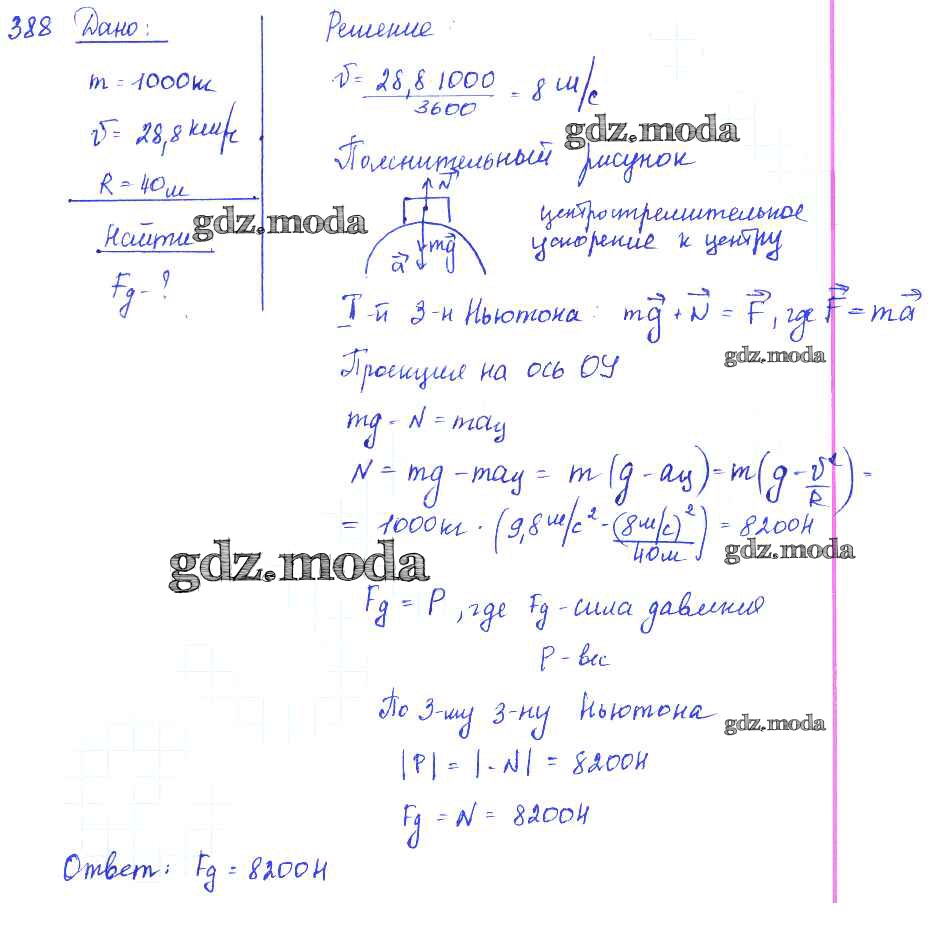 388 Дано:
m = 1000кг
v = 28,8 км/ч
R = 40м
Найти
Fg - ?
Решение:
v = 28,8 1000 / 3600 = 8 м/с
Пояснительный рисунок
gdz.moda
N
mg
a
центростремительное
ускорение к центру
gdz.moda
II-й З-н Ньютона: mg + N = F, где F = ma
gdz.moda
Проекция на ось ОУ
mg - N = maц
N = mg - maц = m (g - aц) = m (g - v²/R) =
= 1000кг · (9,8 м/с² - (8 м/с)²/40м) = 8200Н
gdz.moda
gdz.moda
Fg = P, где Fg - сила давления
P - вес
По 3-му з-ну Ньютона
gdz.moda
|P| = |-N| = 8200Н
Fg = N = 8200Н
Ответ: Fg = 8200Н